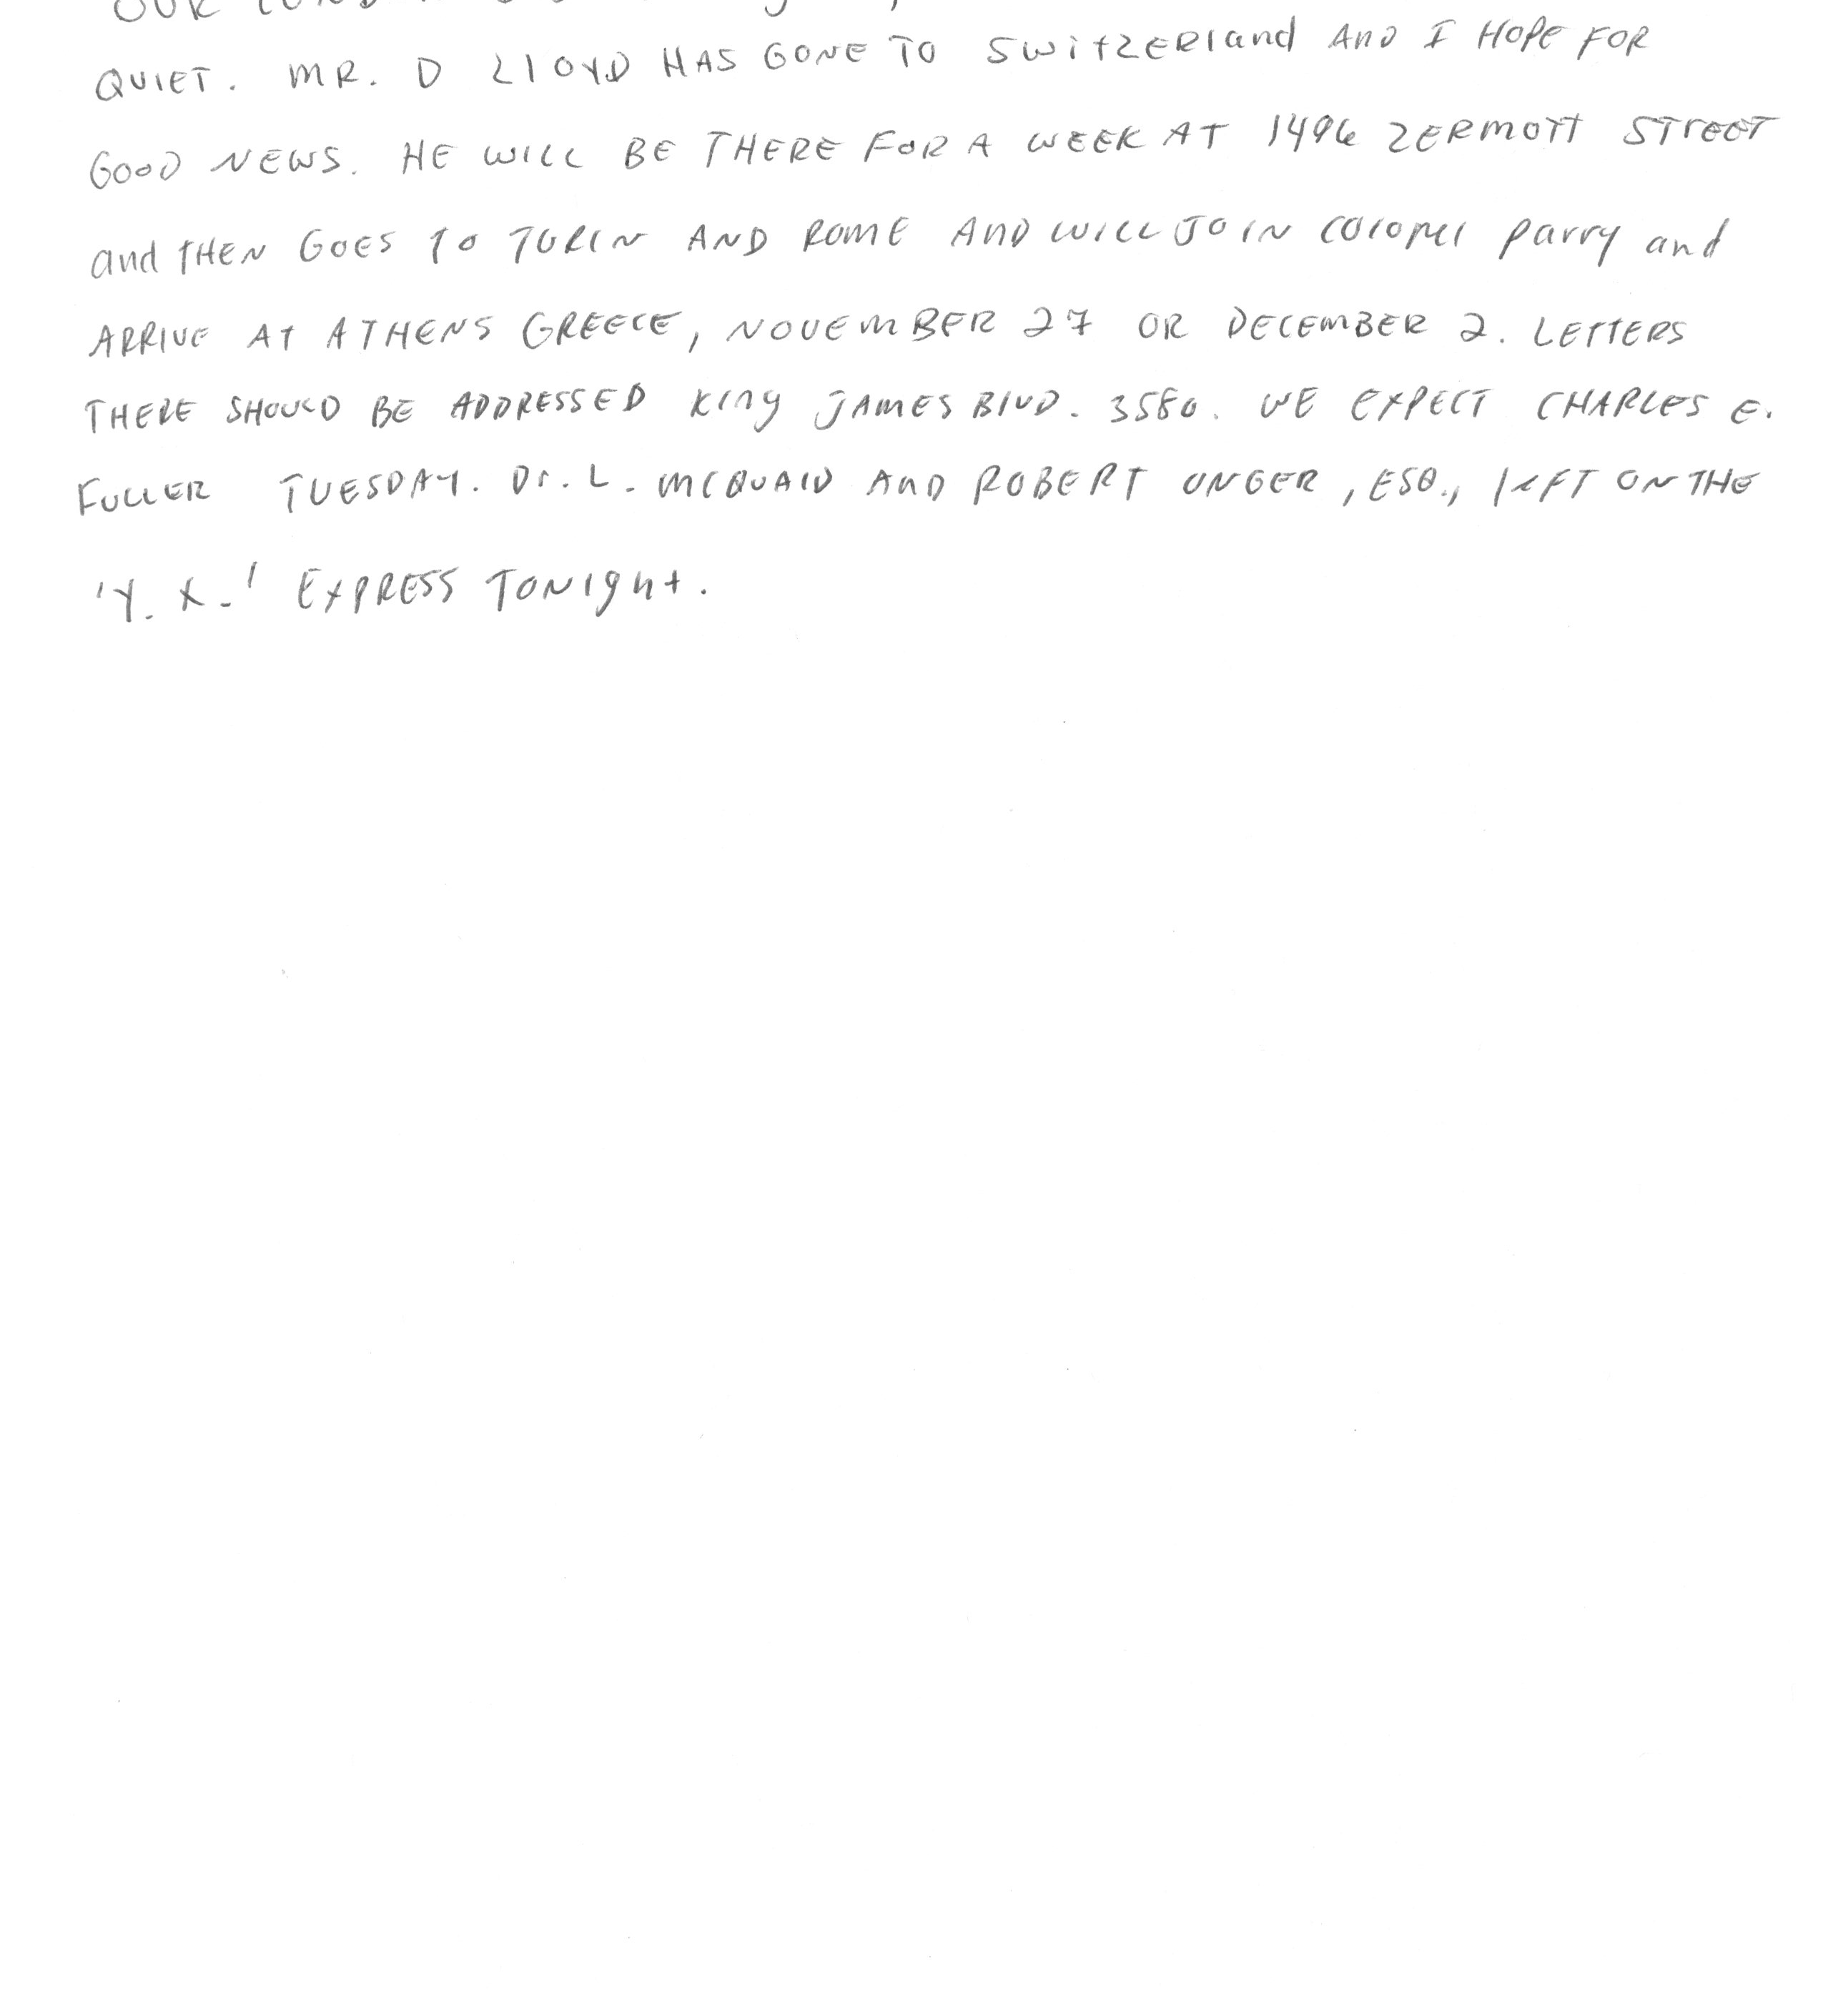 OUR
QUIET. MR. D LlOYD HAS GONE TO SWitZERland AND I HOPE FOR
GOOD NEWS. HE WILL BE THERE FOR A WEEK AT 1496 ZERMOTT STreeT
and tHEN GOES TO TURIN AND ROME AND WILL JOIN COlonel Parry and
ARRIVE At ATHENS GREECE, NOVEMBER 27 OR DECEMBER 2. LETTERS
THERE SHOULD BE ADDRESSED King JAMES BlVD. 3580. WE EXPECT CHARLES E.
FULLER TUESDAY. Dr. L. MCQUAID AnD ROBERT UNGER, ESQ., leFT ON THE
'Y. X.' EXPRESS TONight.